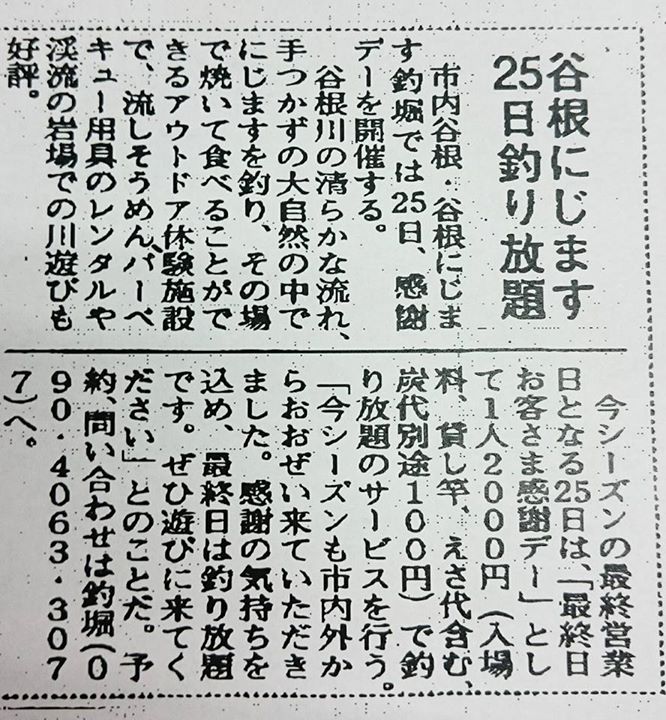 谷根にじます
25日釣り放題
市内谷根・谷根にじま
す釣堀では25日、感謝
デーを開催する。
谷根川の清らかな流れ、
手つかずの大自然の中で
にじますを釣り、その場
で焼いて食べることがで
きるアウトドア体験施設
で、流しそうめん、バーベ
キュー用具のレンタルや
渓流の岩場での川遊びも
好評。
今シーズンの最終営業
日となる25日は、「最終日
お客さま感謝デー」とし
て1人2000円（入場
料、貸し竿、えさ代含む、
炭代別途100円）で釣
り放題のサービスを行う。
「今シーズンも市内外か
らおおぜい来ていただき
ました。感謝の気持ちを
込め、最終日は釣り放題
です。ぜひ遊びに来てく
ださい」とのことだ。予
約、問い合わせは釣堀（0
90・4063・307
7）へ。